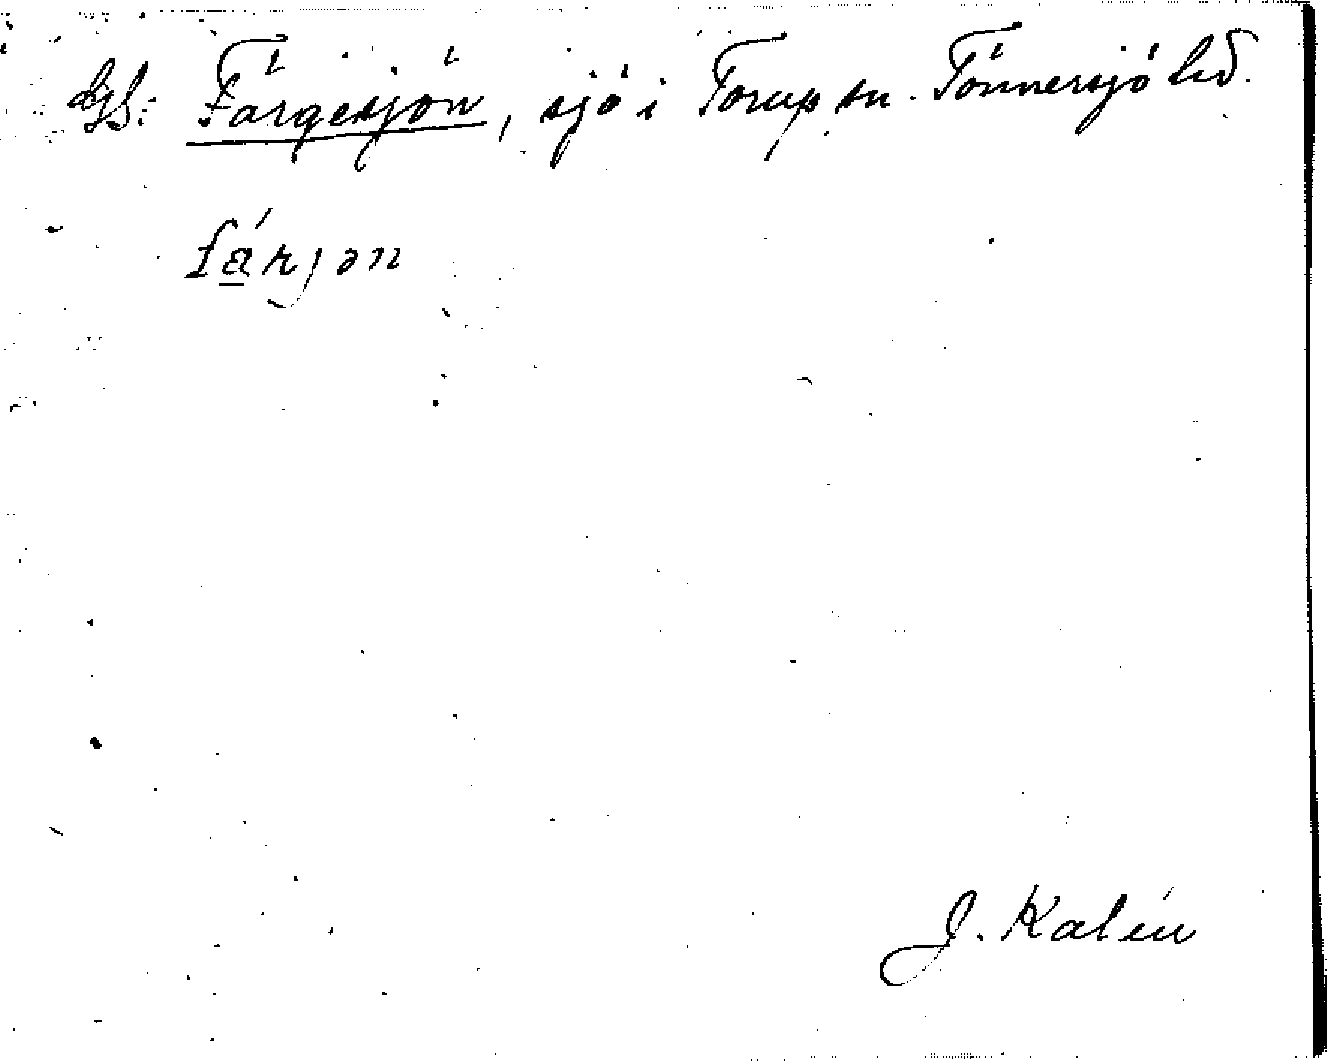 Färgesjön, sjö i Torup sn. Tönnersjö hd.
fárjən
J. Kalén